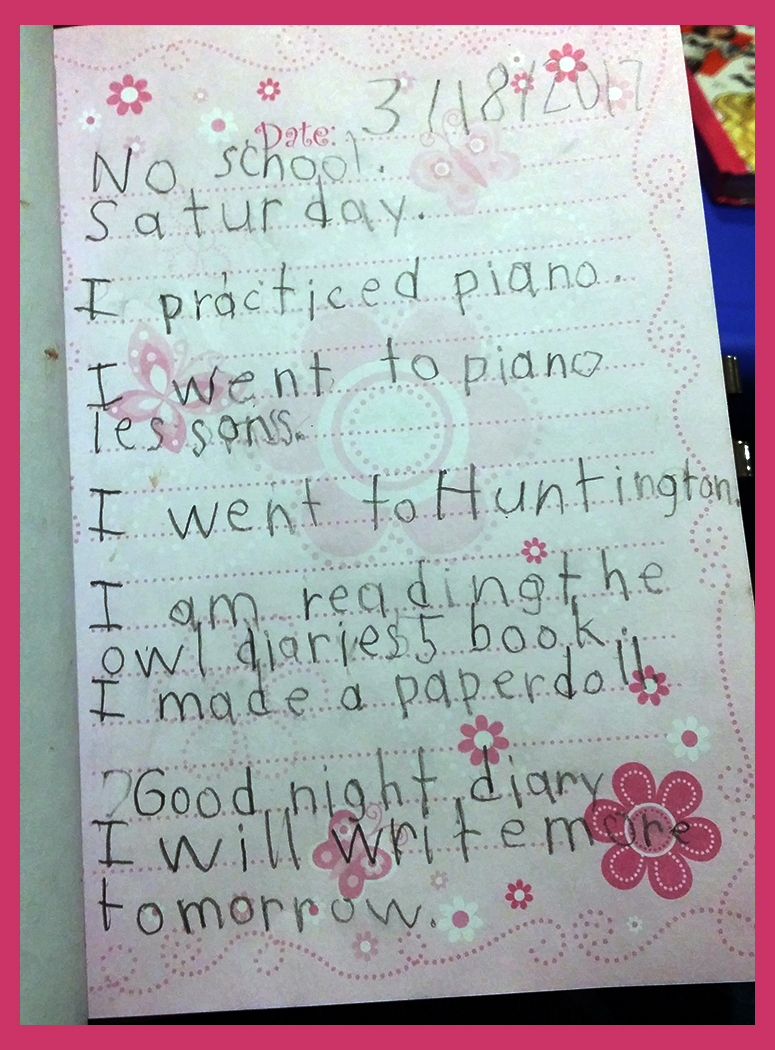 Date: 3/18/2017
No school.
Saturday.
I practiced piano.
I went to piano
lessons.
I went to Huntington.
I am reading the
owl diaries 5 book.
I made a paperdoll.
Good night diary
I will write more
tomorrow.